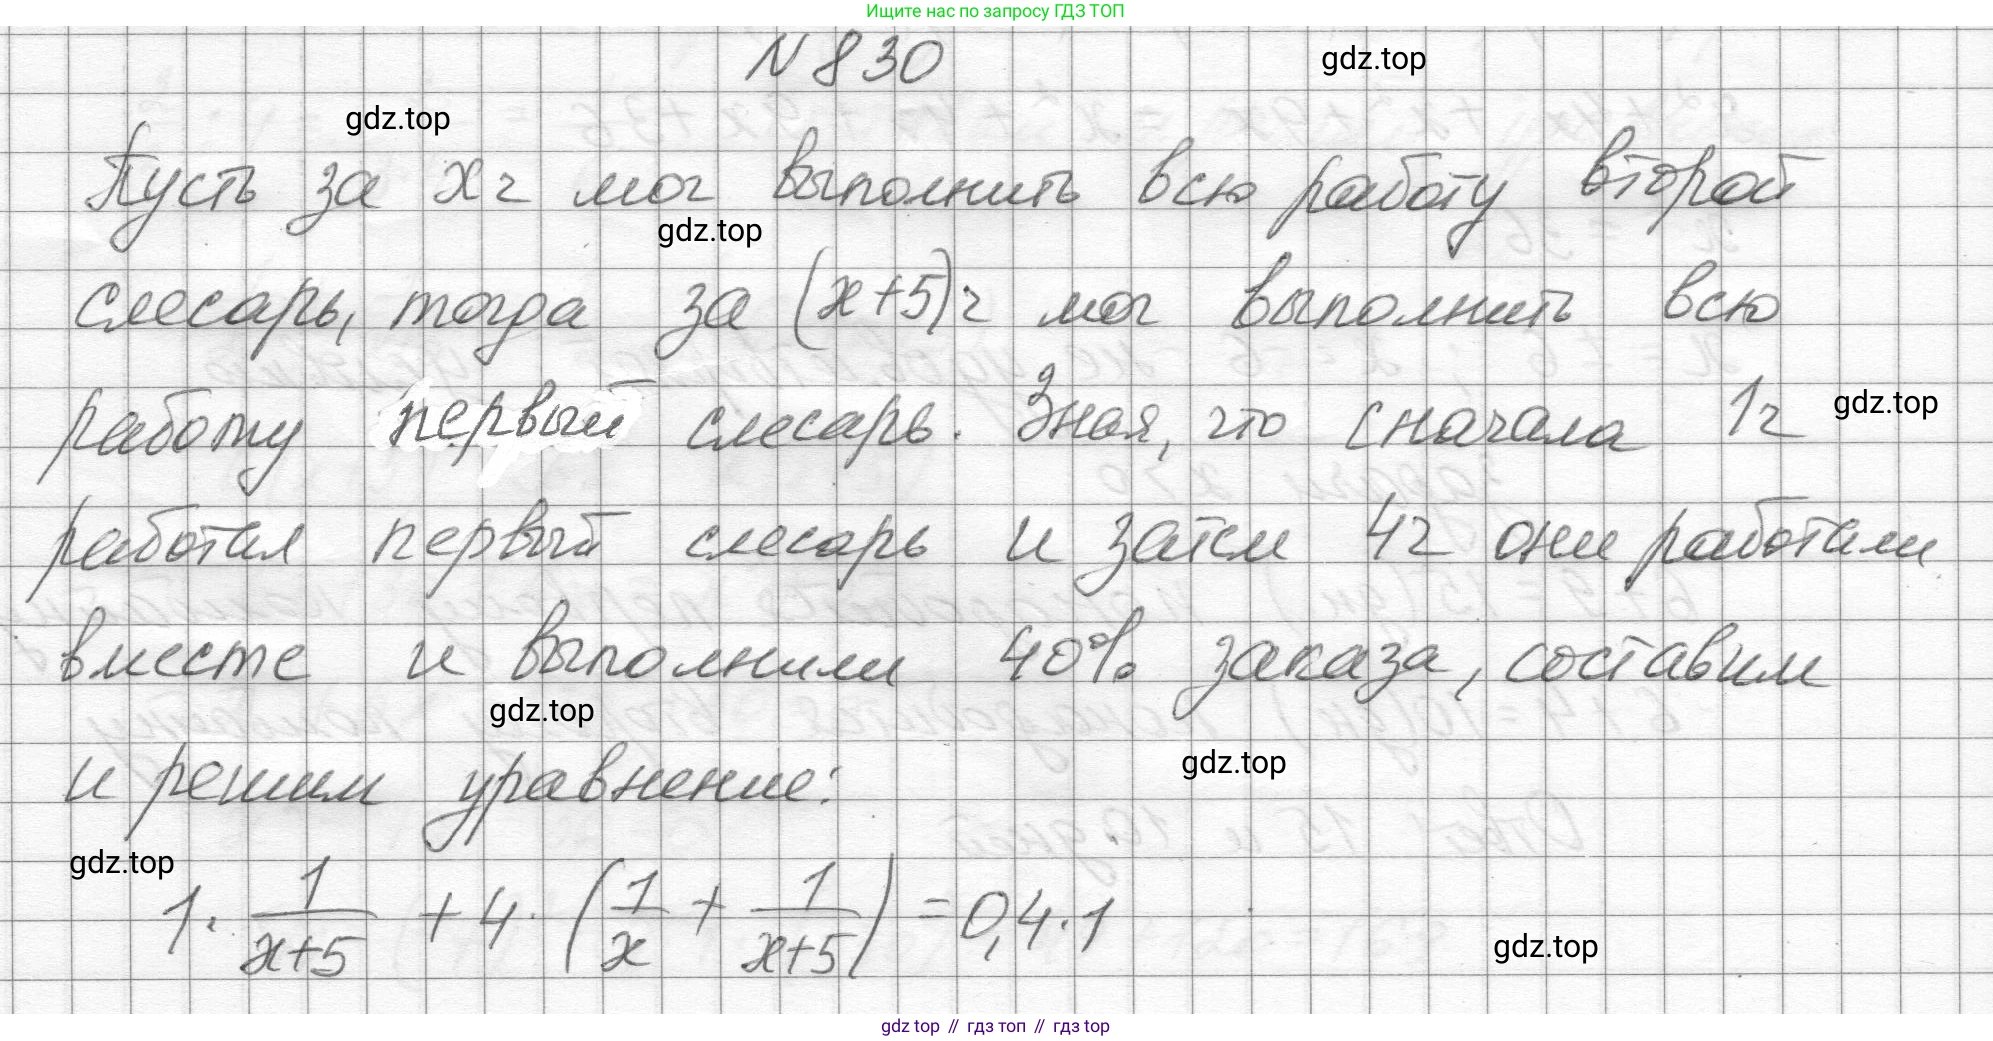 Ищите нас по запросу ГДЗ ТОП
N 830
gdz.top
gdz.top
Пусть за х ч мог выполнить всю работу второй
gdz.top
слесарь, тогда за (х+5) ч мог выполнить всю
работу первый слесарь. Зная, что сначала 1ч
gdz.top
работал первый слесарь и затем 4ч они работали
вместе и выполнили 40% заказа, составим
gdz.top
и решим уравнение:
gdz.top
gdz.top
1 · 1/(x+5) + 4 · (1/x + 1/(x+5)) = 0,4 · 1
gdz.top
gdz top // гдз топ // гдз top